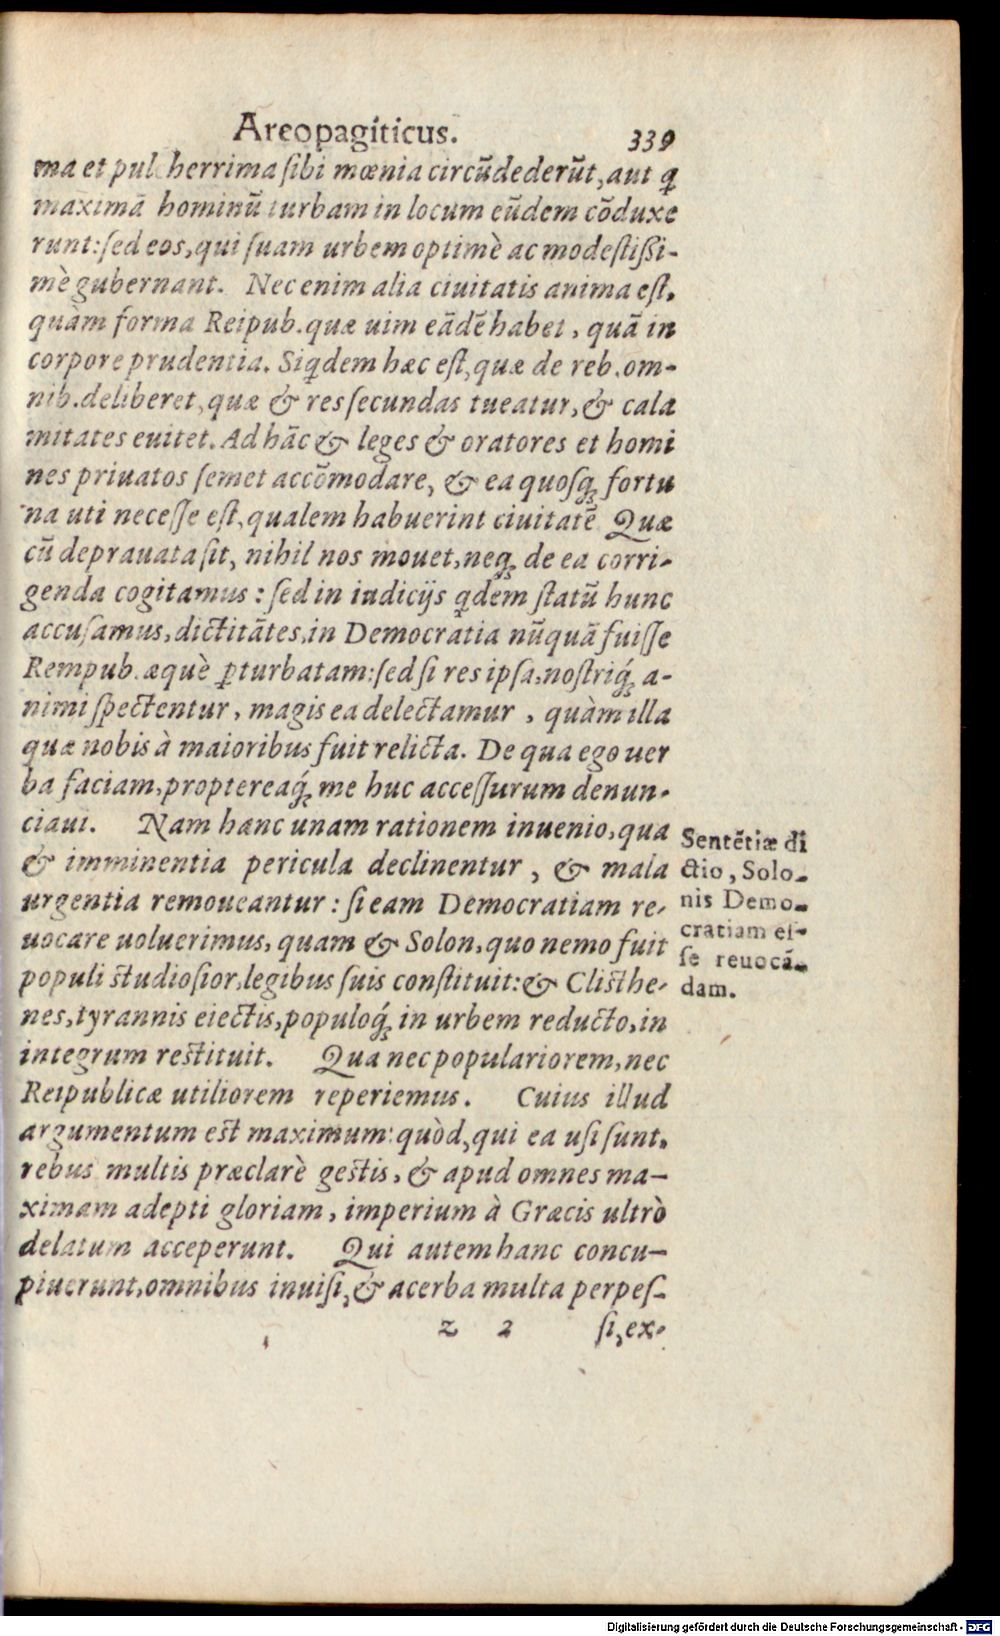 Areopagiticus. 339
ma et pulcherrima ſibi mœnia circũdederũt, aut ꝗ
maximã hominũ turbam in locum eũdem cõduxe
runt: ſed eos, qui ſuam urbem optimè ac modeſtiſsi-
mè gubernant. Nec enim alia ciuitatis anima eſt,
quàm forma Reipub. quæ uim eãdẽ habet, quã in
corpore prudentia. Siqꝗdem hæc eſt, quæ de reb. om-
nib. deliberet, quæ & res ſecundas tueatur, & cala
mitates euitet. Ad hãc & leges & oratores et homi
nes priuatos ſemet accõmodare, & ea quoſqꝫ fortu
na uti neceſſe eſt, qualem habuerint ciuitatẽ Quæ
cũ deprauata ſit, nihil nos mouet, neqꝫ de ea corri-
genda cogitamus: ſed in iudicijs ꝗdem ſtatũ hunc
accuſamus, dictitãtes, in Democratia nũquã fuiſſe
Rempub. æquè ꝑturbatam: ſed ſi res ipſa, noſtriq́ꝫ a-
nimi ſpectentur, magis ea delectamur, quàm illa
quæ nobis à maioribus fuit relicta. De qua ego uer
ba faciam, proptereaq́ꝫ me huc acceſſurum denun-
ciaui. Nam hanc unam rationem inuenio, qua
& imminentia pericula declinentur, & mala
urgentia remoueantur: ſi eam Democratiam re-
uocare uoluerimus, quam & Solon, quo nemo fuit
populi ſtudioſior, legibus ſuis conſtituit: & Cliſthe-
nes, tyrannis eiectis, populoq́ꝫ in urbem reducto, in
integrum reſtituit. Qua nec populariorem, nec
Reipublicæ utiliorem reperiemus. Cuius illud
argumentum eſt maximum: quòd, qui ea uſi ſunt,
rebus multis præclarè geſtis, & apud omnes ma-
ximam adepti gloriam, imperium à Græcis ultrò
delatum acceperunt. Qui autem hanc concu-
piuerunt, omnibus inuiſi, & acerba multa perpeſ-
z 2 ſi, ex-
Sentẽtiæ di
ctio, Solo-
nis Demo-
cratiam eſ-
ſe reuocã-
dam.
Digitalisierung gefördert durch die Deutsche Forschungsgemeinschaft - DFG